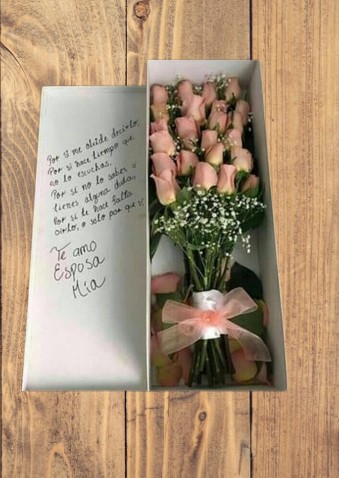 Por si me olvide decirlo,
Por si hace tiempo que
no lo escuchas,
Por si no lo sabes o
tienes alguna duda,
Por si te hace falta
oirlo, o solo por que si,
Te amo
Esposa
Mia